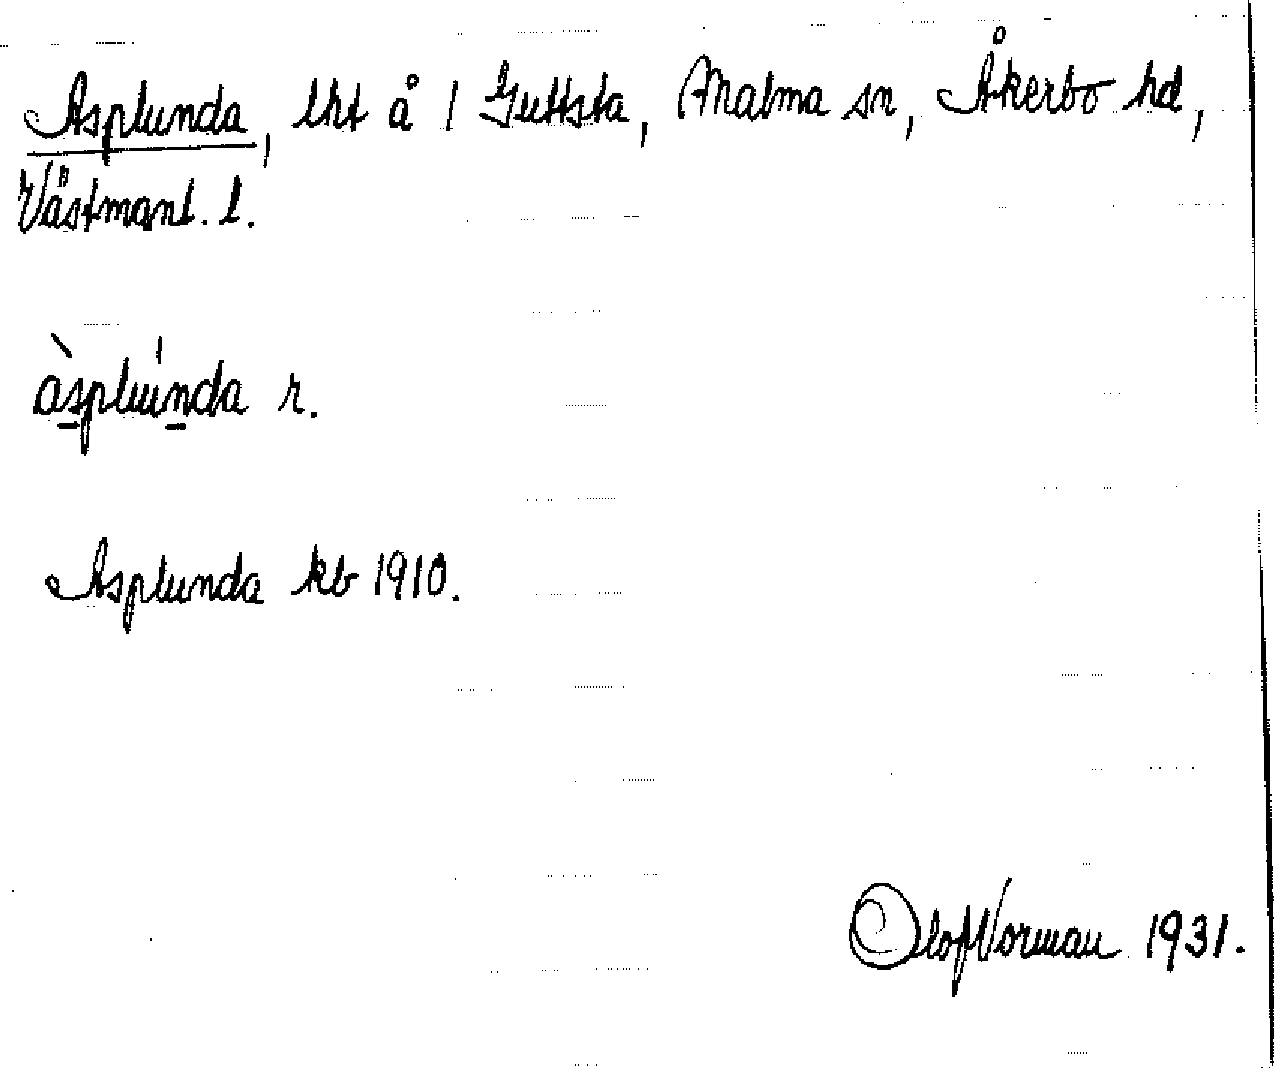 Asplunda, lht å 1 Guttsta, Malma sn, Åkerbo hd,
Västmanl. l.
àsplúnda r.
Asplunda kb 1910.
Olof Norman 1931.